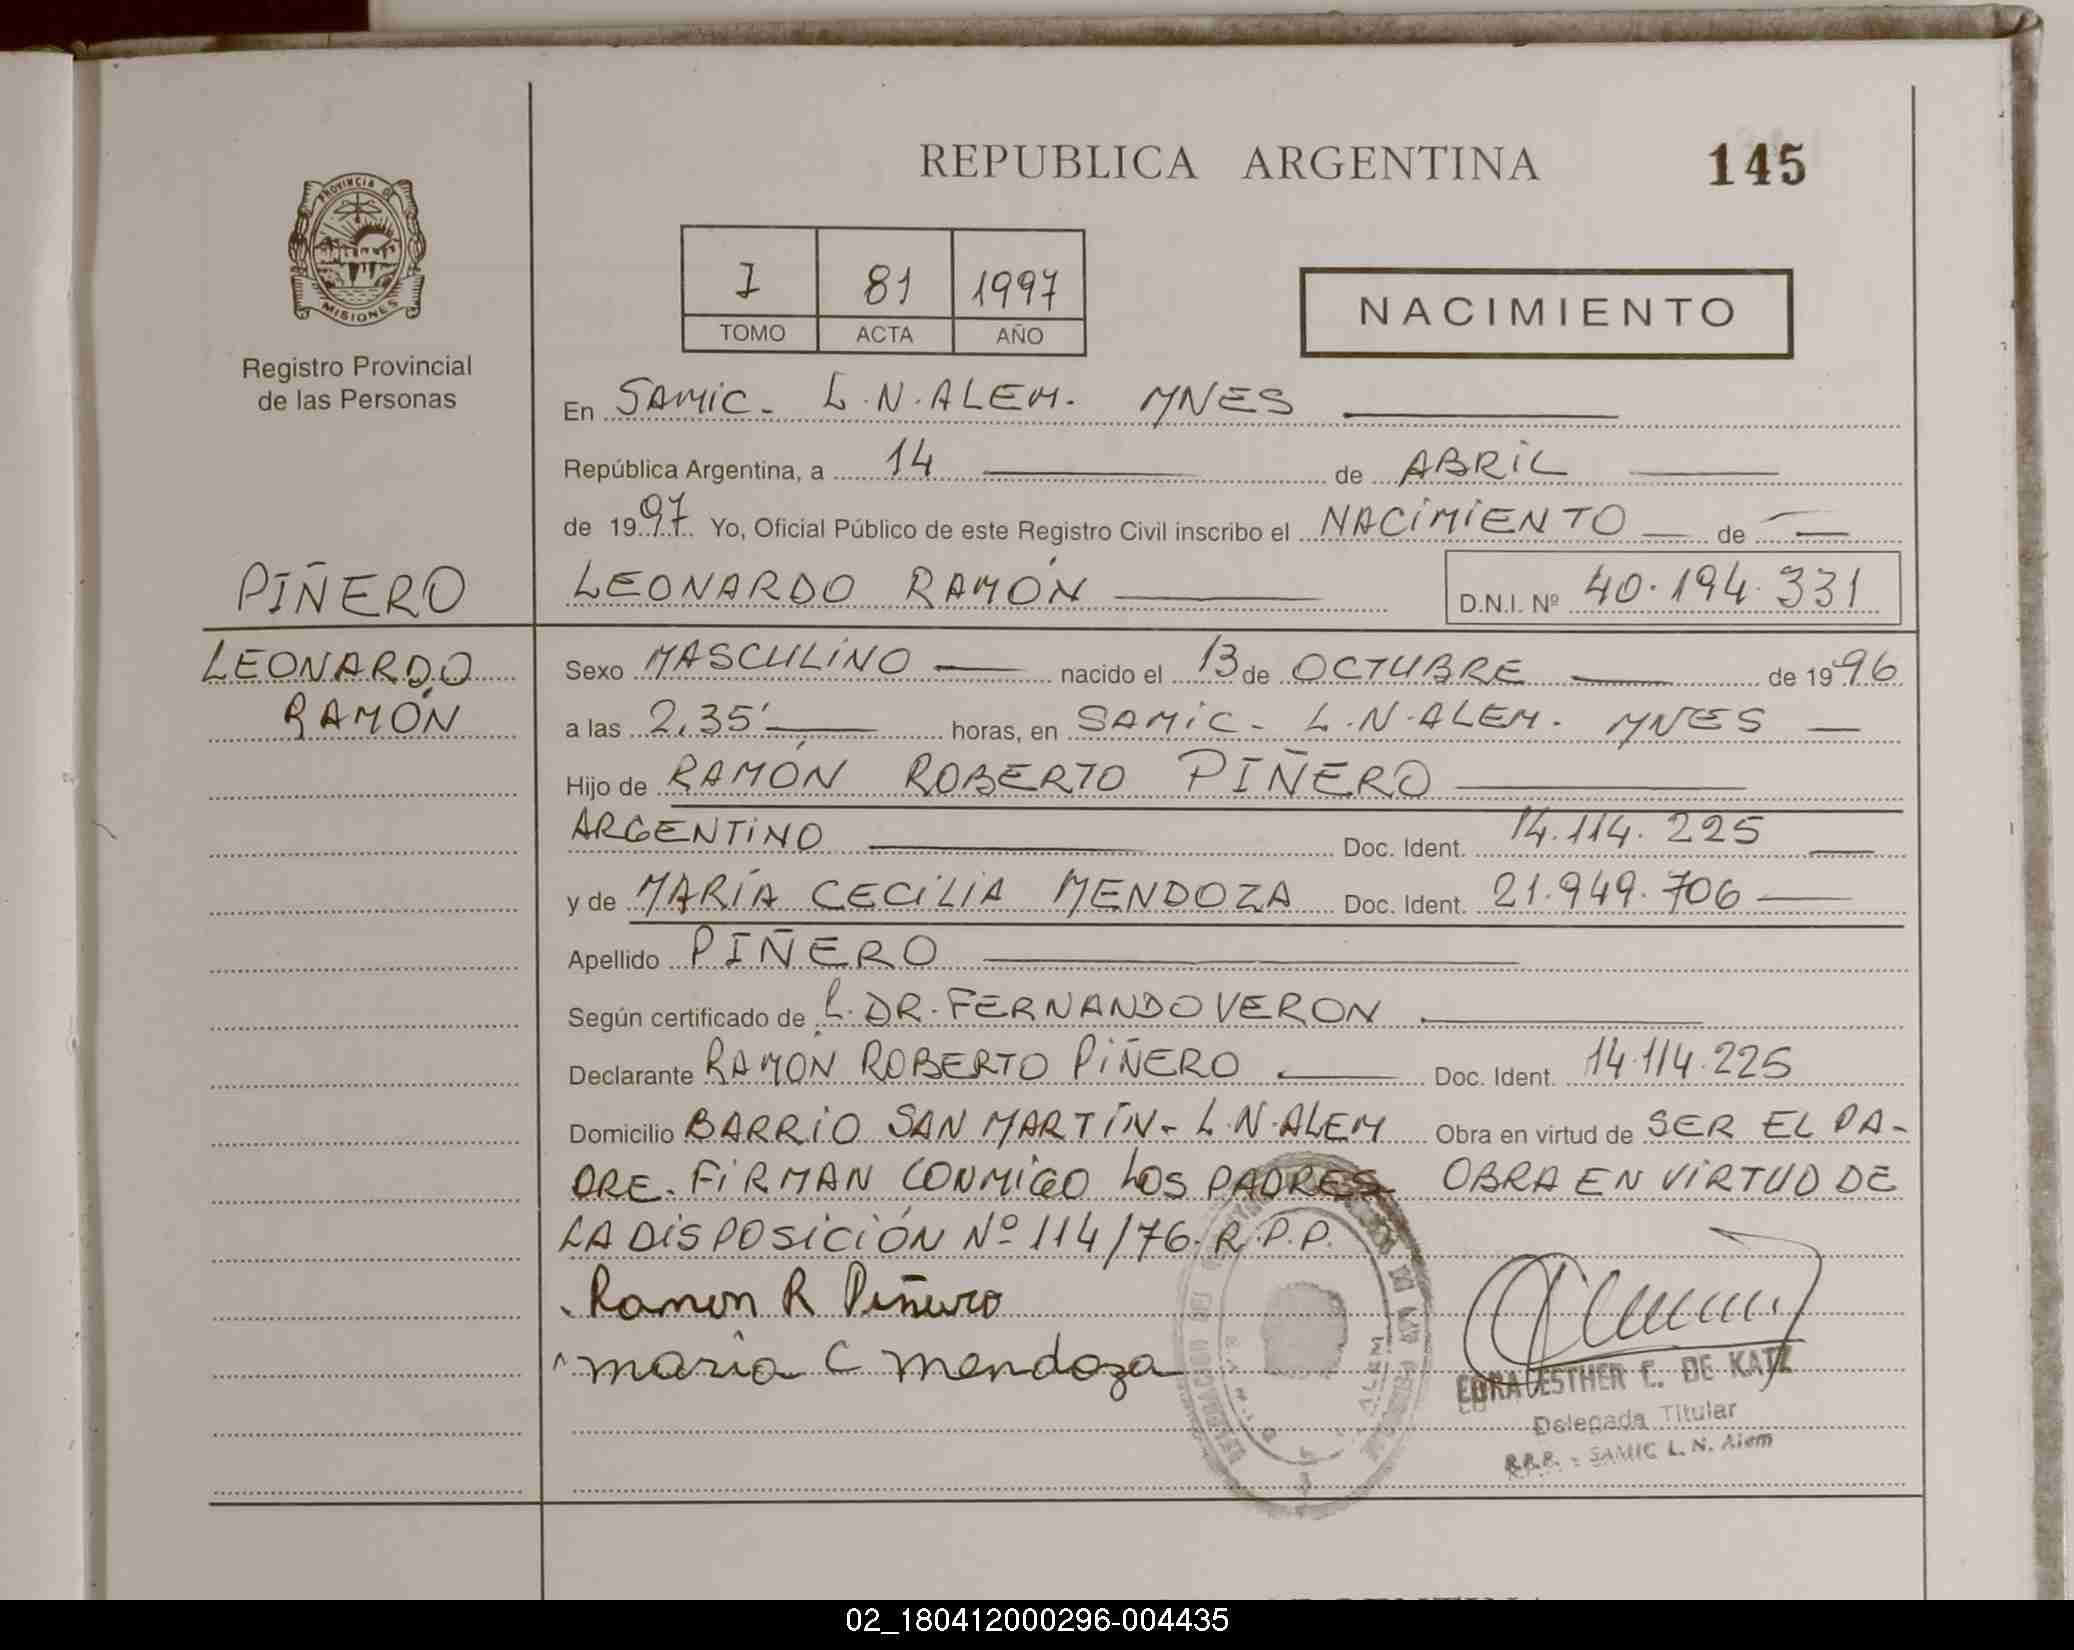 REPUBLICA ARGENTINA 145
PROVINCIA DE
MISIONES
Registro Provincial
de las Personas
I 81 1997
TOMO ACTA AÑO
NACIMIENTO
En SAMIC. L.N.ALEM. MNES
República Argentina, a 14 de ABRIL
de 1997. Yo, Oficial Público de este Registro Civil inscribo el NACIMIENTO de
PIÑERO
LEONARDO RAMÓN D.N.I. Nº 40.194.331
LEONARDO
RAMÓN
Sexo MASCULINO nacido el 13 de OCTUBRE de 1996
a las 2,35' horas, en SAMIC - L.N.ALEM. MNES
Hijo de RAMÓN ROBERTO PIÑERO
ARGENTINO Doc. Ident. 14.114.225
y de MARÍA CECILIA MENDOZA Doc. Ident. 21.949.706
Apellido PIÑERO
Según certificado de L. DR. FERNANDO VERON
Declarante RAMÓN ROBERTO PIÑERO Doc. Ident. 14.114.225
Domicilio BARRIO SAN MARTÍN - L.N.ALEM Obra en virtud de SER EL PA-
DRE. FIRMAN CONMIGO LOS PADRES OBRA EN VIRTUD DE
LA DISPOSICIÓN Nº 114/76. R.P.P.
Ramon R Piñero
maria C mendoza
ESTHER C. DE KATZ
Delegada Titular
R.P.P. - SAMIC L. N. Alem
ALEM
02_180412000296-004435